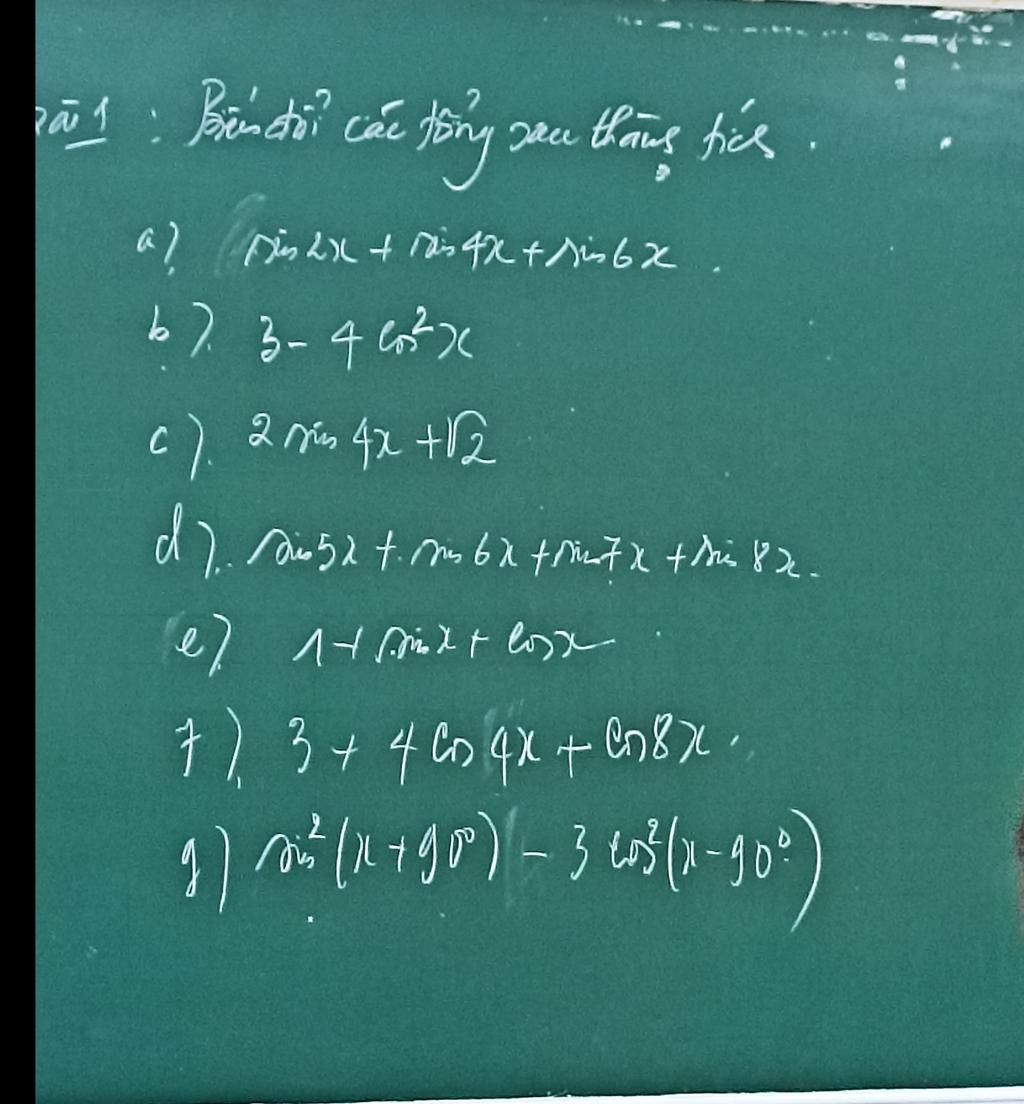 Bài 1 : Biến đổi các tổng sau thành tích.
a) sin 2x + sin 4x + sin 6x.
b) 3 - 4 cos²x
c) 2 sin 4x + √2
d) sin 5x + sin 6x + sin 7x + sin 8x.
e) 1 + sin x + cos x
f) 3 + 4 cos 4x + cos 8x.
g) sin²(x + 90°) - 3 cos²(x - 90°)